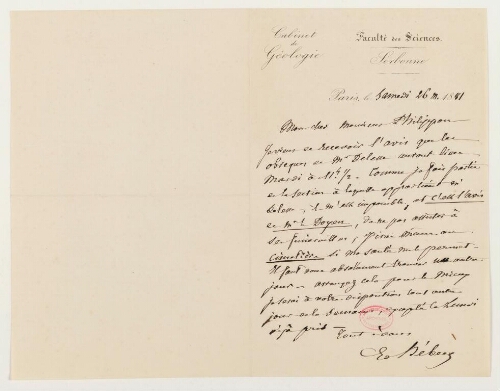 Cabinet
de
Géologie
Faculté des Sciences.
Sorbonne
Paris, le Samedi 26 M. 1881
Mon cher Monsieur Philippon
Je viens de recevoir l'avis que les
obsèques de Mr Delesse auront lieu
Mardi à 11h 1/2. Comme je fais partie
de la section à laquelle appartenait Mr
Delesse, il m'est impossible, et c'est l'avis
de Mr le Doyen, de ne pas assister à
ses funérailles; j'irai même au
cimetière si ma santé me le permet.
Il faut donc absolument trouver un autre
jour. arrangez cela pour le mieux
je serai à votre disposition tout autre
jour de la semaine, excepté le Lundi
déjà pris
Tout à vous
Ed Hébert